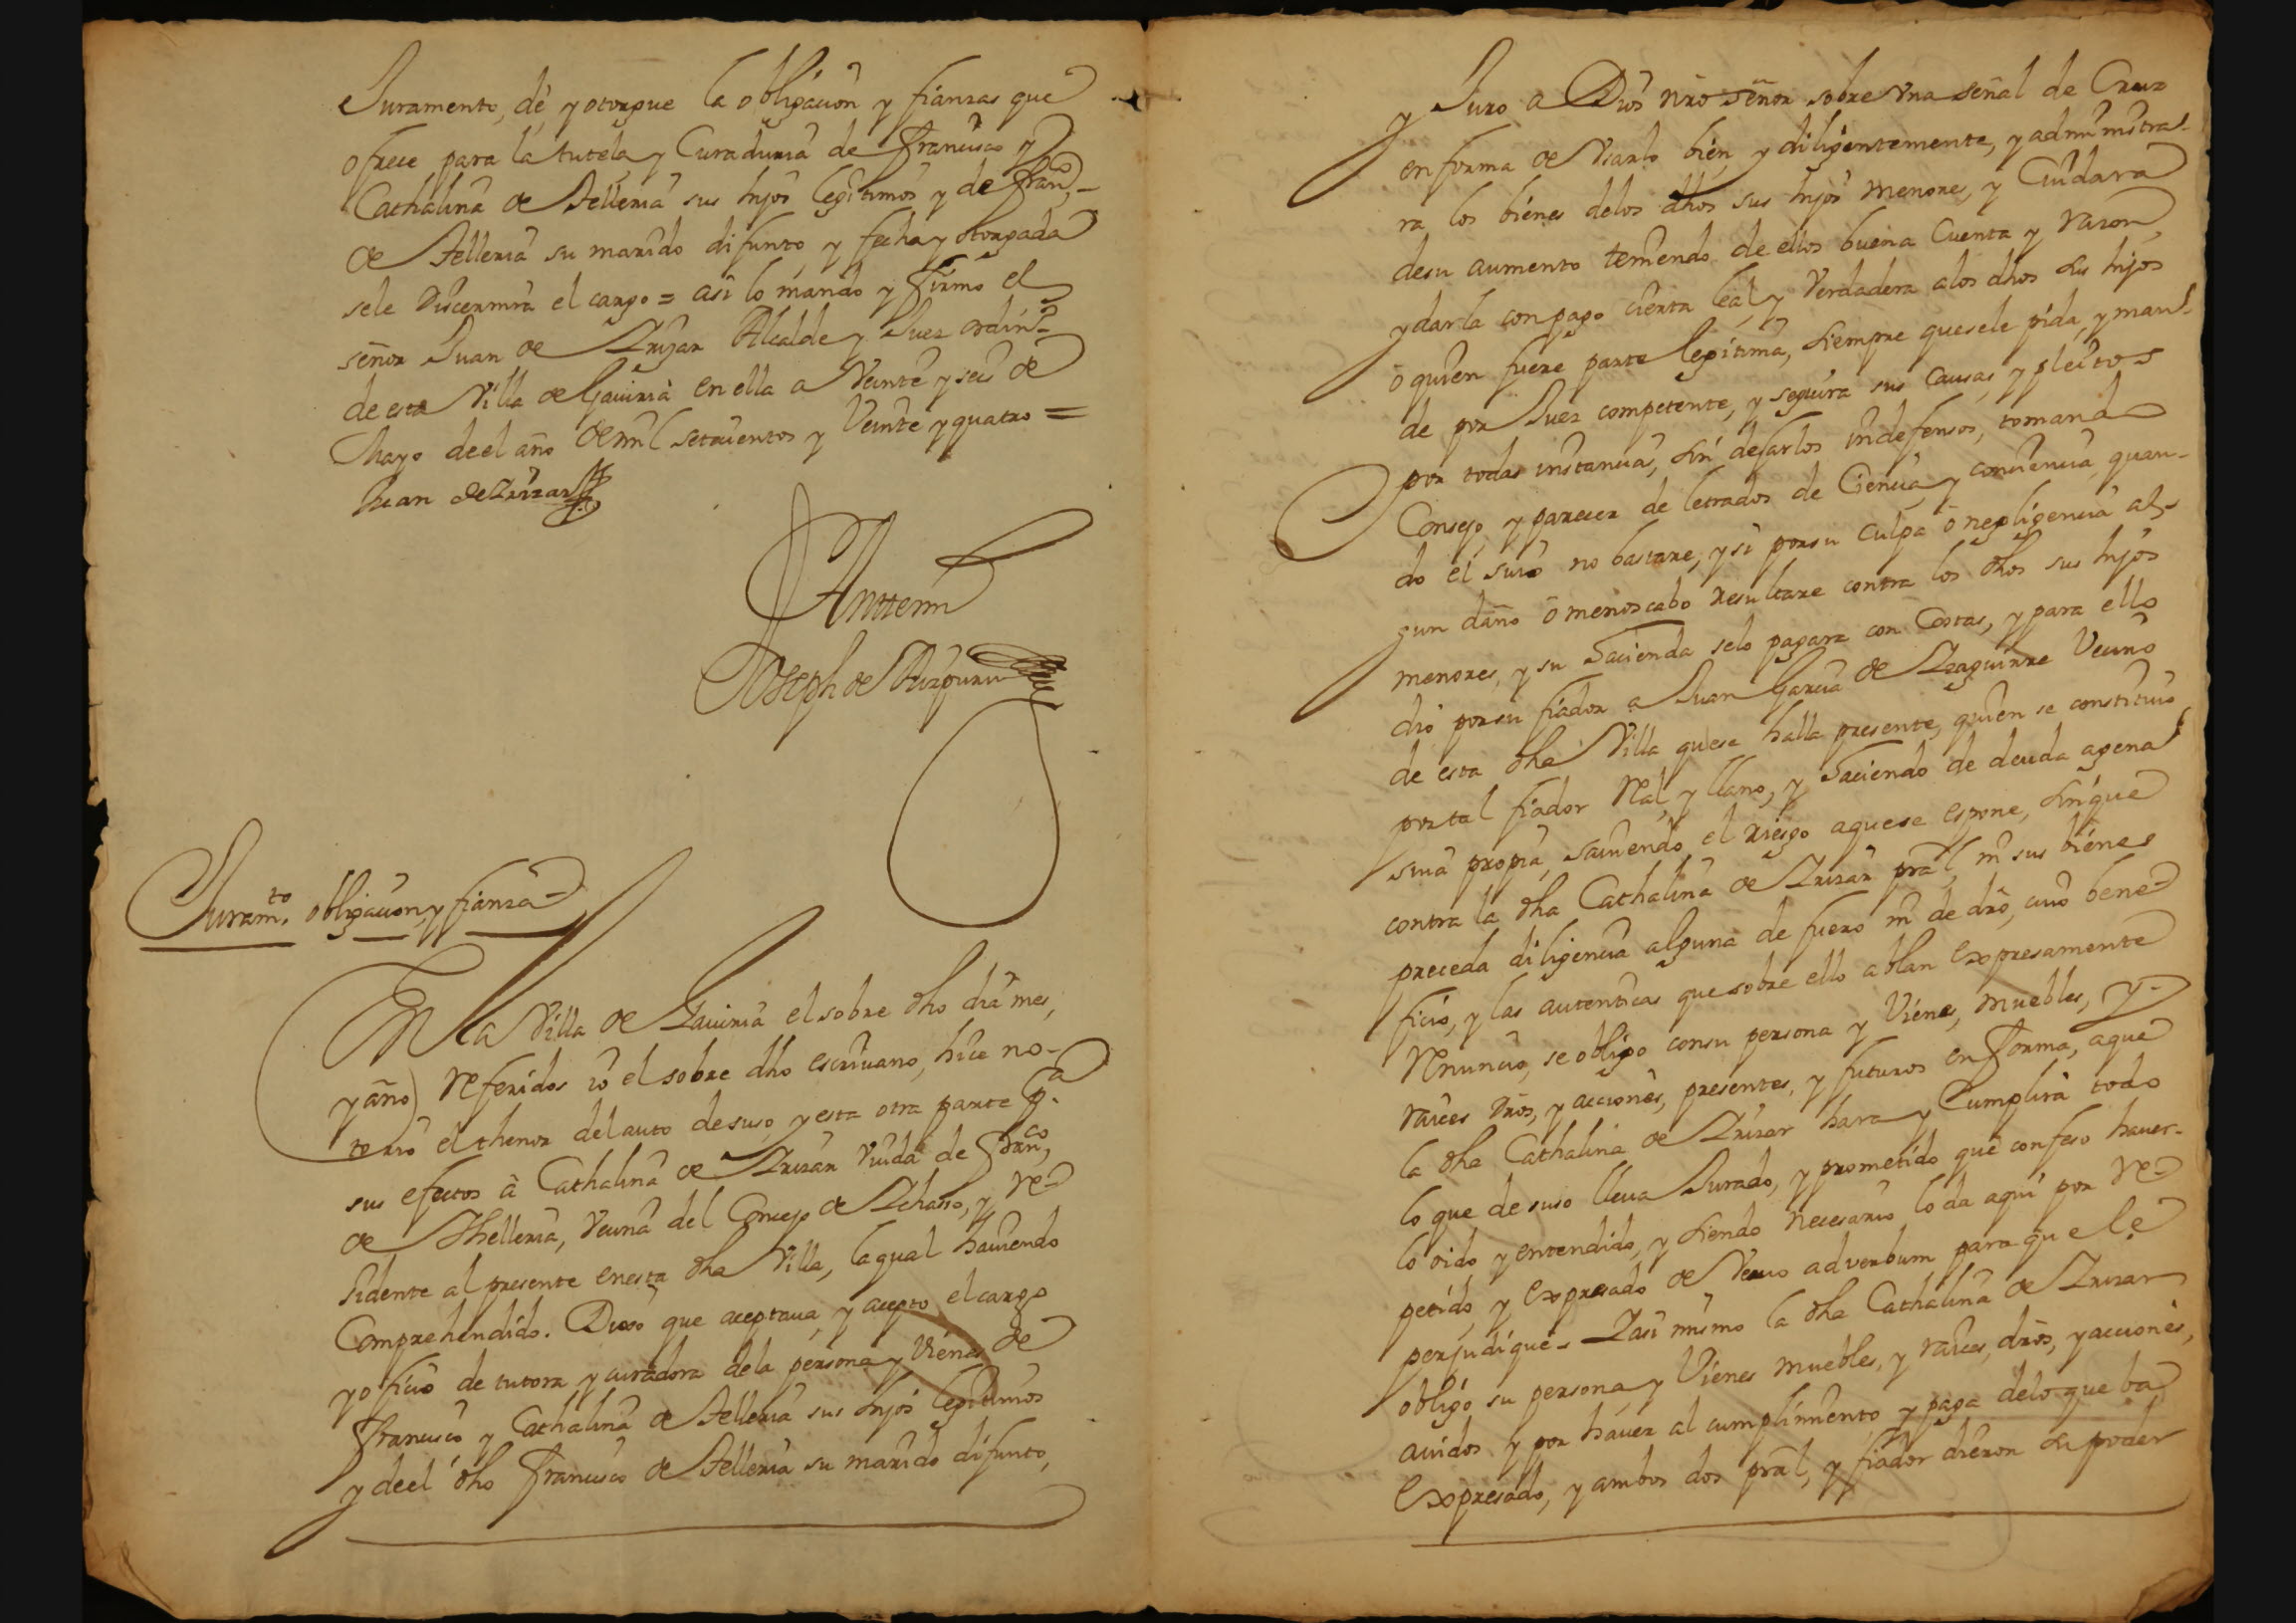 Juramento, dé, y otorgue la obligacion y fianzas que
ofrece para la tutela y Curaduria de Francisco y
Cathalina de Telleria sus hijos legitimos y de Fran.co
de Telleria su marido difunto, y fecha y otorgada
sele discernira el cargo = asi lo mando y firmo el
señor Juan de Irizar Alcalde y Juez ordin.o
de esta Villa de Gaviria en ella a Veinte y seis de
Mayo deel año de mil setecientos y Veinte y quatro =
Juan de Irizar
Ante mi
Joseph de Aizpuru
Juram.to obligacion, y fianza
En la Villa de Gaviria el sobre dho dia mes,
y año referidos io el sobre dho escrivano, hice no-
torio el thenor del auto desuso, y esta otra parte p.a
sus efectos à Cathalina de Irizar viuda de Fran.co
de Thelleria, Vecina del Concejo de Ichaso, y re-
sidente al presente en esta dha Villa, la qual haviendo
Comprehendido. Dixo que aceptava, y acepto el cargo
y oficio de tutora, y curadora dela persona, y Vienes de
Francisco y Cathalina de Telleria sus hijos legitimos
y deel dho Francisco de Telleria su marido difunto,
y Juro a Dios nro señor sobre Vna señal de Cruz
en forma de Vsarlo bien, y diligentemente, y administra-
ra los bienes delos dhos sus hijos menores, y Cuidara
desu aumento teniendo de ellos buena Cuenta y razon,
y darla con pago cierta leal, y Verdadera alos dhos sus hijos
ò quien fuere parte legitima, siempre quesele pida, y man-
de por Juez competente, y seguira sus causas, y pleitos
por todas instancias, sin dejarlos indefensos, tomando
Consejo, y parecer de letrados de Ciencia, y conciencia, quan-
do el suio no bastare, y si porsu culpa ò negligencia al-
gun daño ò menoscabo resultare contra los dhos sus hijos
menores, y su hacienda selo pagara con Costas, y para ello
dio porsu fiador a Juan Garcia de Izaguirre Vecino
de esta dha Villa quese halla presente, quien se constituio
por tal fiador real, y llano, y haciendo de deuda agena
suia propia, saviendo el riesgo aquese espone, sin que
contra la dha Cathalina de Irizar pral, ni sus bienes
preceda diligencia alguna de fuero ni de dro, cuio bene-
ficio, y las autenticas que sobre ello ablan expresamente
renuncio, se obligo consu persona y Vienes, muebles, y
raices dros, y acciones, presentes, y futuros en forma, aque
la dha Cathalina de Irizar hara y Cumplira todo
lo que de suso lleva Jurado, y prometido que confeso haver-
lo oido y entendido, y siendo necesario lo da aqui por re-
petido, y expresado de Verbo ad verbum para que le
perjudique. I asi mismo la dha Cathalina de Irizar
obligò su persona, y Vienes muebles, y raices, dros, y acciones,
avidos y por haver al cumplimiento, y paga delo que ba
Expresado, y ambos dos pral, y fiador dieron su poder